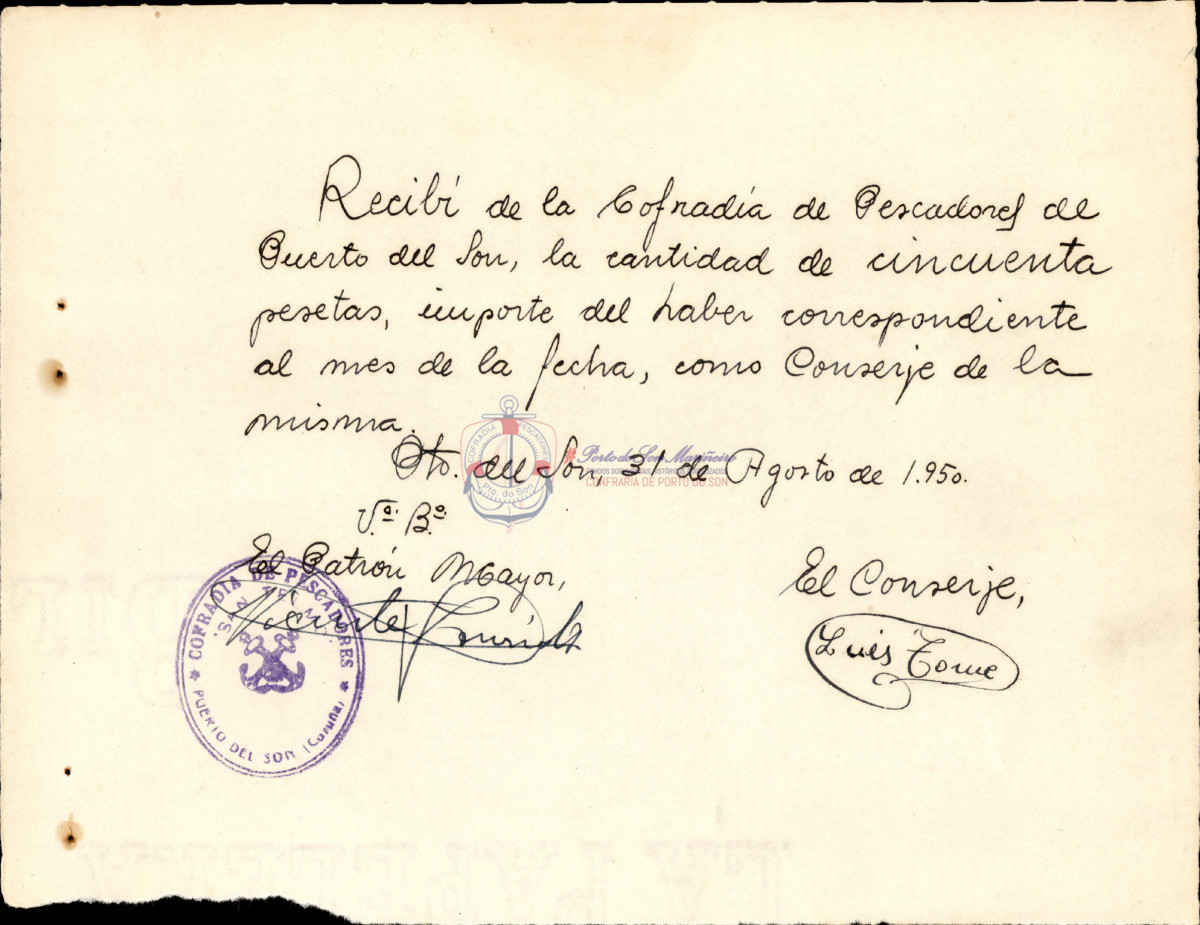 Recibí de la Cofradía de Pescadores de
Puerto del Son, la cantidad de cincuenta
pesetas, importe del haber correspondiente
al mes de la fecha, como Conserje de la
misma.
Pto. del Son, 31 de Agosto de 1.950.
COFRADIA PESCADORES
Pto. do Son
Porto do Son Mariñeiro
CONFRARÍA DE PORTO DO SON
V.º B.º
El Patrón Mayor,
Vicente
El Conserje,
Luis Tome
COFRADIA DE PESCADORES
"SAN
PUERTO DEL SON (Coruña)